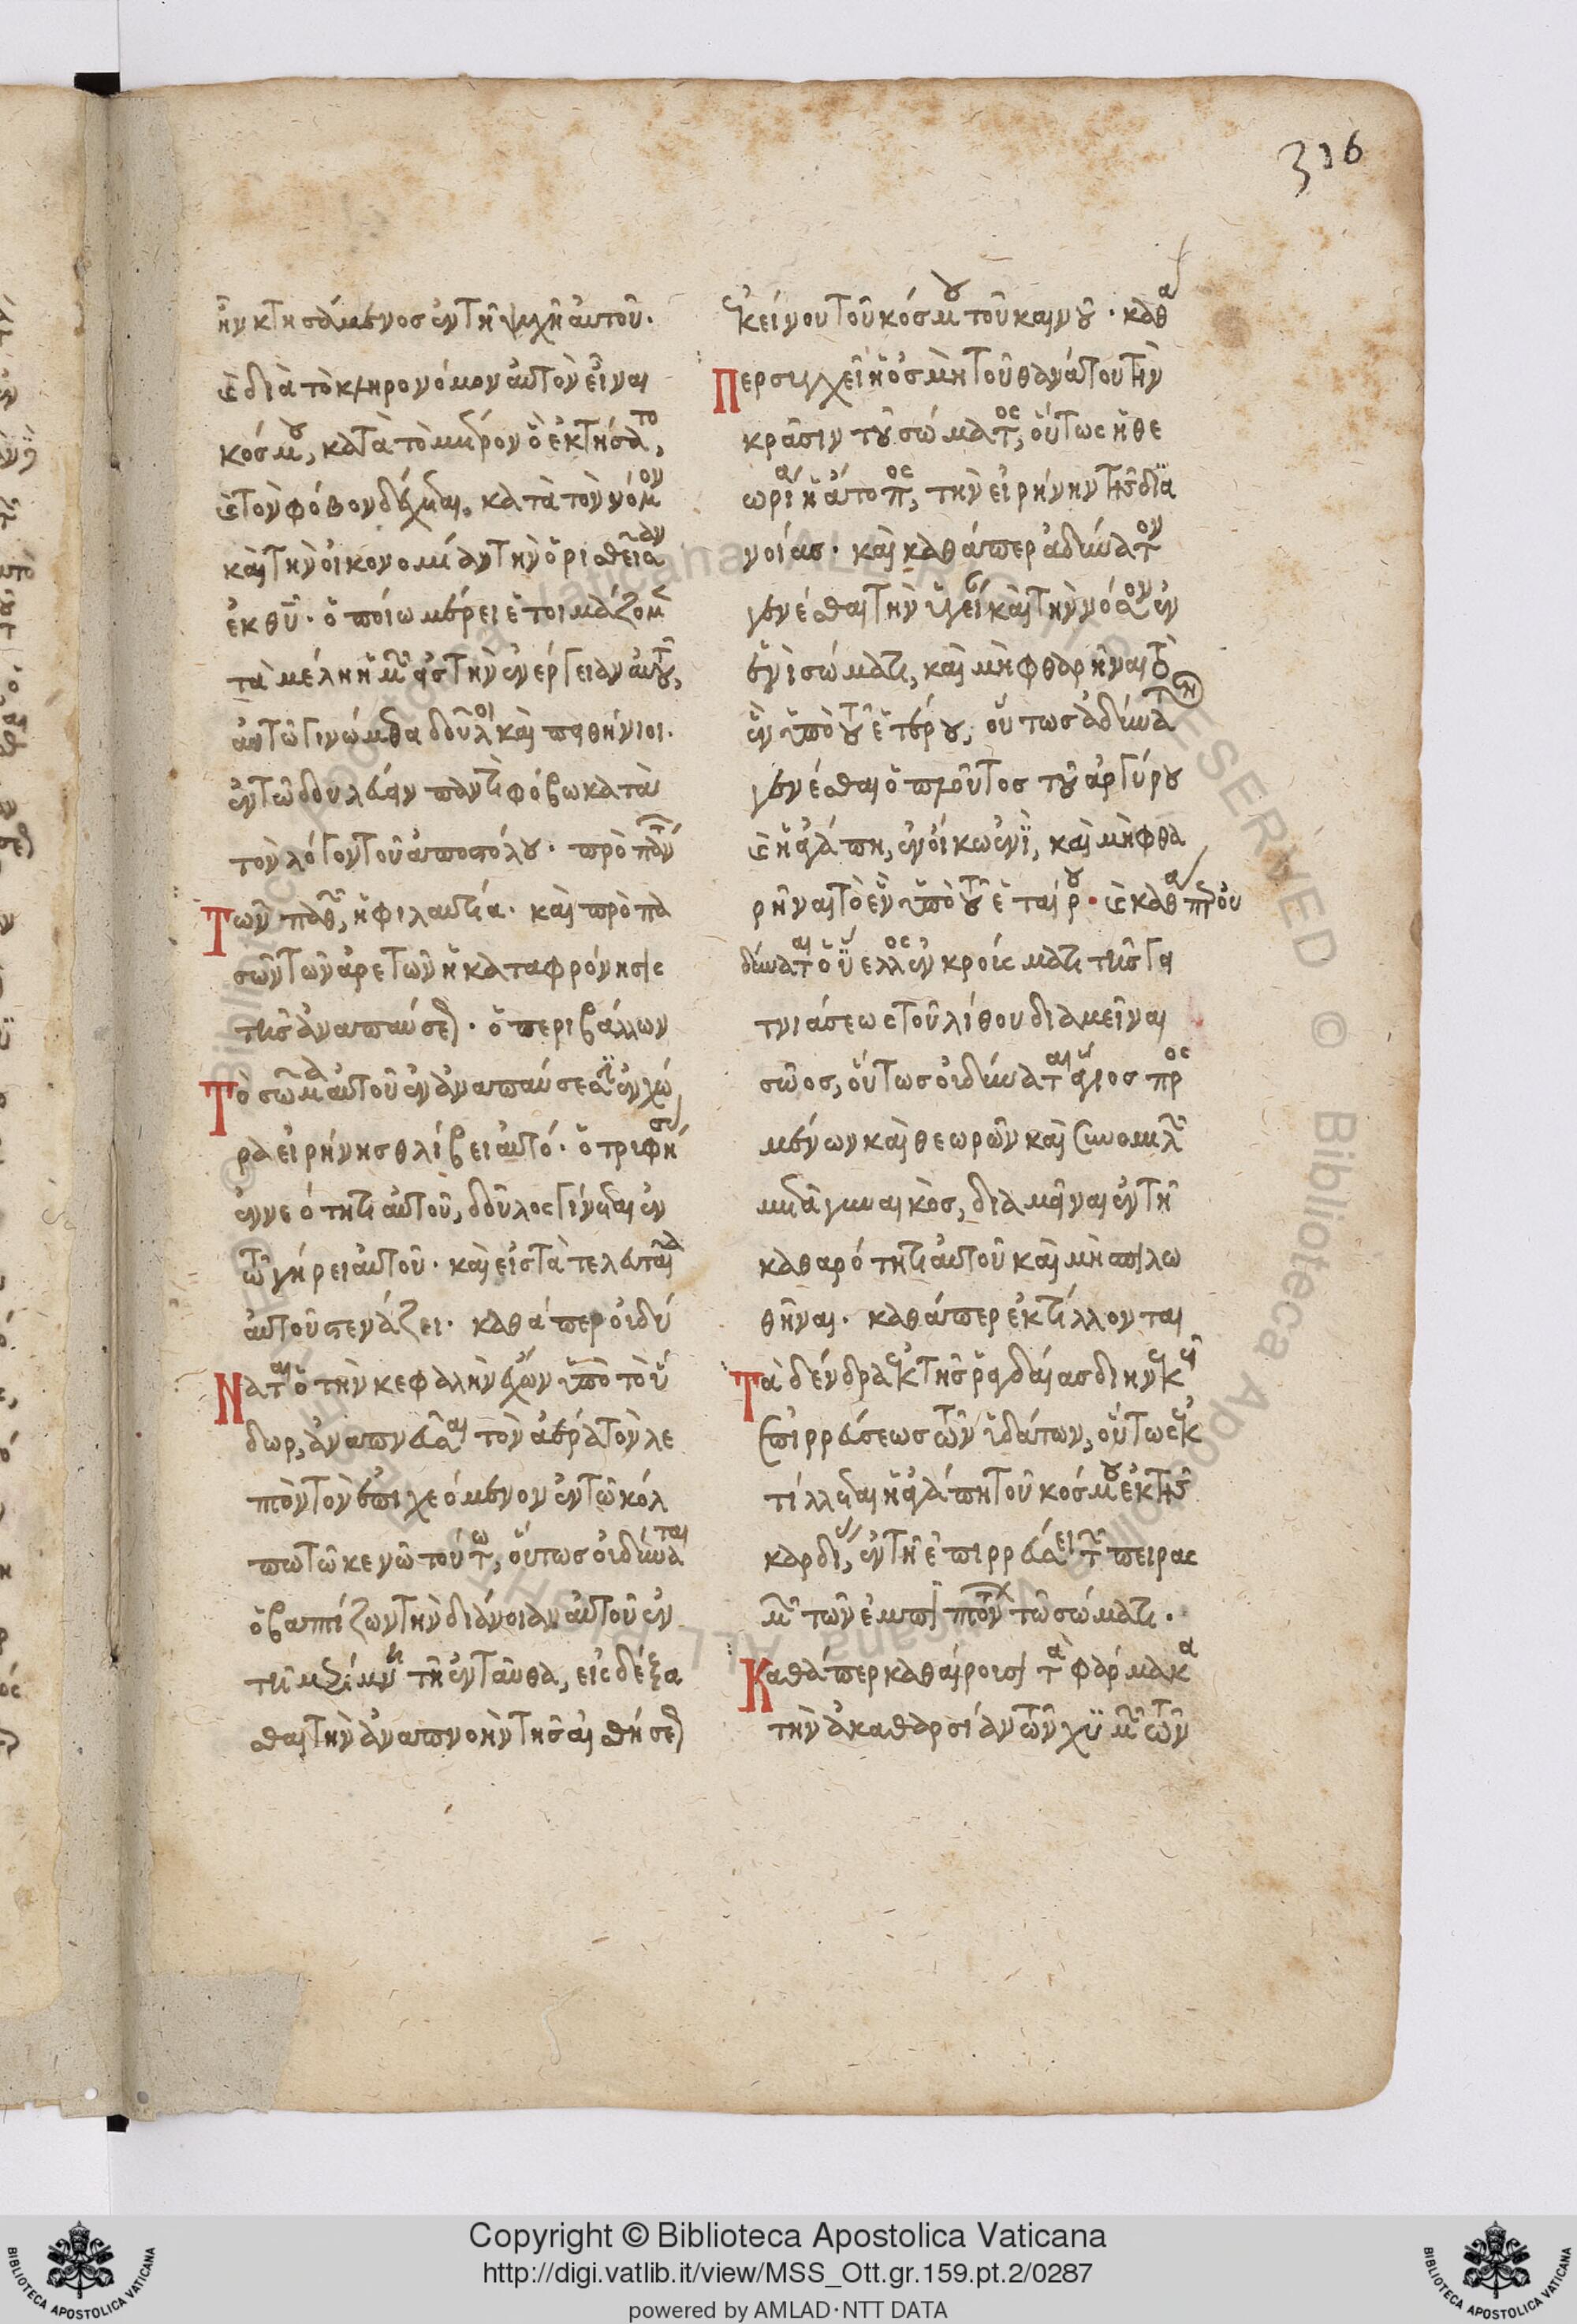 316
ἣν κτησάμενος ἐν τῇ ψυχῇ αὐτοῦ.
καὶ διὰ τὸ κληρονόμον αὐτὸν εἶναι
κόσμου, κατὰ τὸ μικρὸν ὃ ἐκτήσατο,
καὶ τὸν φόβον δέχεται, κατὰ τὸν νόμον
καὶ τὴν οἰκονομίαν τὴν ὁρισθεῖσαν
ἐκ θυ. ὁποίω μέρει ἑτοιμάζομεν
τὰ μέλη ἡμῶν εἰς τὴν ἐνέργειαν αὐτοῦ,
αὐτῶ γινώμεθα δοῦλοι καὶ
ἐν τῶ δουλεύειν παντὶ φόβω κατὰ
τὸν λόγον τοῦ ἀποστόλου. πρὸ πάντων
Τῶν παθῶν, ἡ φιλαυτία. καὶ πρὸ πα
σῶν τῶν ἀρετῶν ἡ καταφρόνησις
τῆς ἀναπαύσεως. ὁ περιβάλλων
Τὸ σῶμα αὐτοῦ ἐν ἀναπαύσει ἐν χώ
ρα εἰρήνης θλίβει αὐτό. ὁ τρυφήσας
ἐν νεότητι αὐτοῦ, δοῦλος γίνεται ἐν
τῶ γήρει αὐτοῦ. καὶ εἰς τὰ τελευταῖα
αὐτοῦ στενάζει. καθάπερ οὐ δύ
Ναται ὁ τὴν κεφαλὴν ἔχων ὑπὸ τὸ ὕ
δωρ, ἀναπνεῦσαι τὸν ἀέρα τὸν λε
πτὸν τὸν ἐπιχεόμενον ἐν τῶ κόλ
πω τῶ κενῶ τούτω, οὕτως οὐ δύναται
ὁ βαπτίζων τὴν διάνοιαν αὐτοῦ ἐν
τῇ μερίμνῃ τῇ ἐνταῦθα, εἰσδέξα
σθαι τὴν ἀναπνοὴν τῆς αἰσθήσεως
ἐκείνου τοῦ κόσμου τοῦ καινοῦ. καθά
Περ συγχεῖ ἡ ὀσμὴ τοῦ θανάτου τὴν
κρᾶσιν τοῦ σώματος, οὕτως ἡ θε
ωρία ἡ ἄτοπος, τὴν εἰρήνην τῆς δια
νοίας. καὶ καθάπερ ἀδύνατον
γενέσθαι τὴν ὑγείαν καὶ τὴν νόσον ἐν
ἑνὶ σώματι, καὶ μὴ φθαρῆναι τὸ
ἓν ὑπὸ τοῦ ἑτέρου, οὕτως ἀδύνατον
γενέσθαι ὁ πλοῦτος τοῦ ἀργύρου
καὶ ἡ ἀγάπη, ἐν οἴκω ἑνὶ, καὶ μὴ φθα
ρῆναι τὸ ἓν ὑπὸ τοῦ ἑταίρου. καὶ καθάπερ οὐ
δύναται ὁ ὕελος ἐν κρούσματι τῆς γει
τνιάσεως τοῦ λίθου διαμεῖναι
σῶος, οὕτως οὐ δύναται ἅγιος προς
μένων καὶ θεωρῶν καὶ συνομιλῶν
μετὰ γυναικὸς, διαμεῖναι ἐν τῇ
καθαρότητι αὐτοῦ καὶ μὴ σπιλω
θῆναι. καθάπερ ἐκτίλλονται
Τὰ δένδρα ἐκ τῆς ῥαγδαίας διηνεκοῦς
ἐπιρρεύσεως τῶν ὑδάτων, οὕτως ἐκ
τίλλεται ἡ ἀγάπη τοῦ κόσμου ἐκ τῆς
καρδίας, ἐν τῇ ἐπιρρεύσει τῶν πειρασ
μῶν τῶν ἐμπιπτόντων τῶ σώματι.
Καθάπερ καθαίρουσι τὰ φάρμακα
τὴν ἀκαθαρσίαν τῶν χυμῶν τῶν
Copyright © Biblioteca Apostolica Vaticana
http://digi.vatlib.it/view/MSS_Ott.gr.159.pt.2/0287
powered by AMLAD·NTT DATA